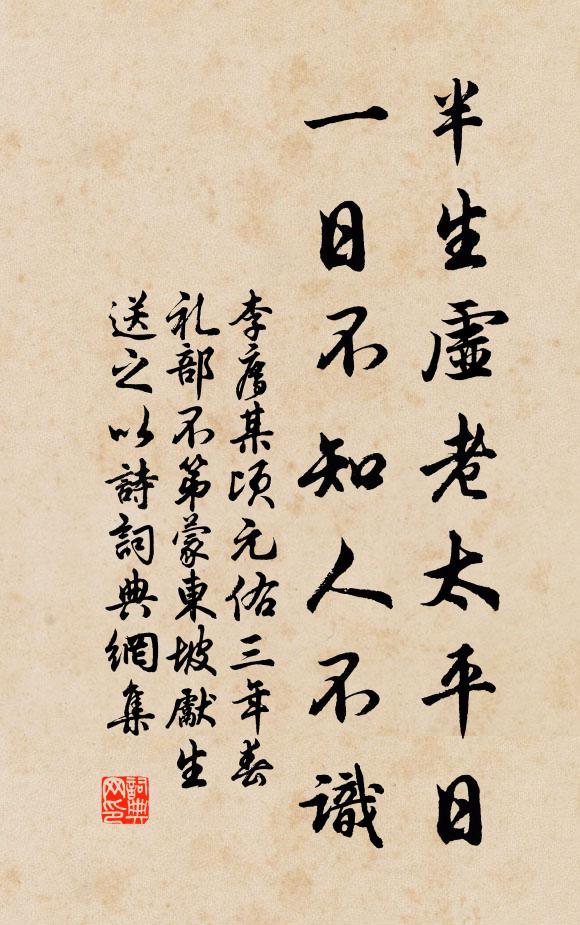 半生虛老太平日
一日不知人不識
李廌某頃元佑三年春
礼部不第蒙東坡獻生
送之以詩詞典網集
詞典网印